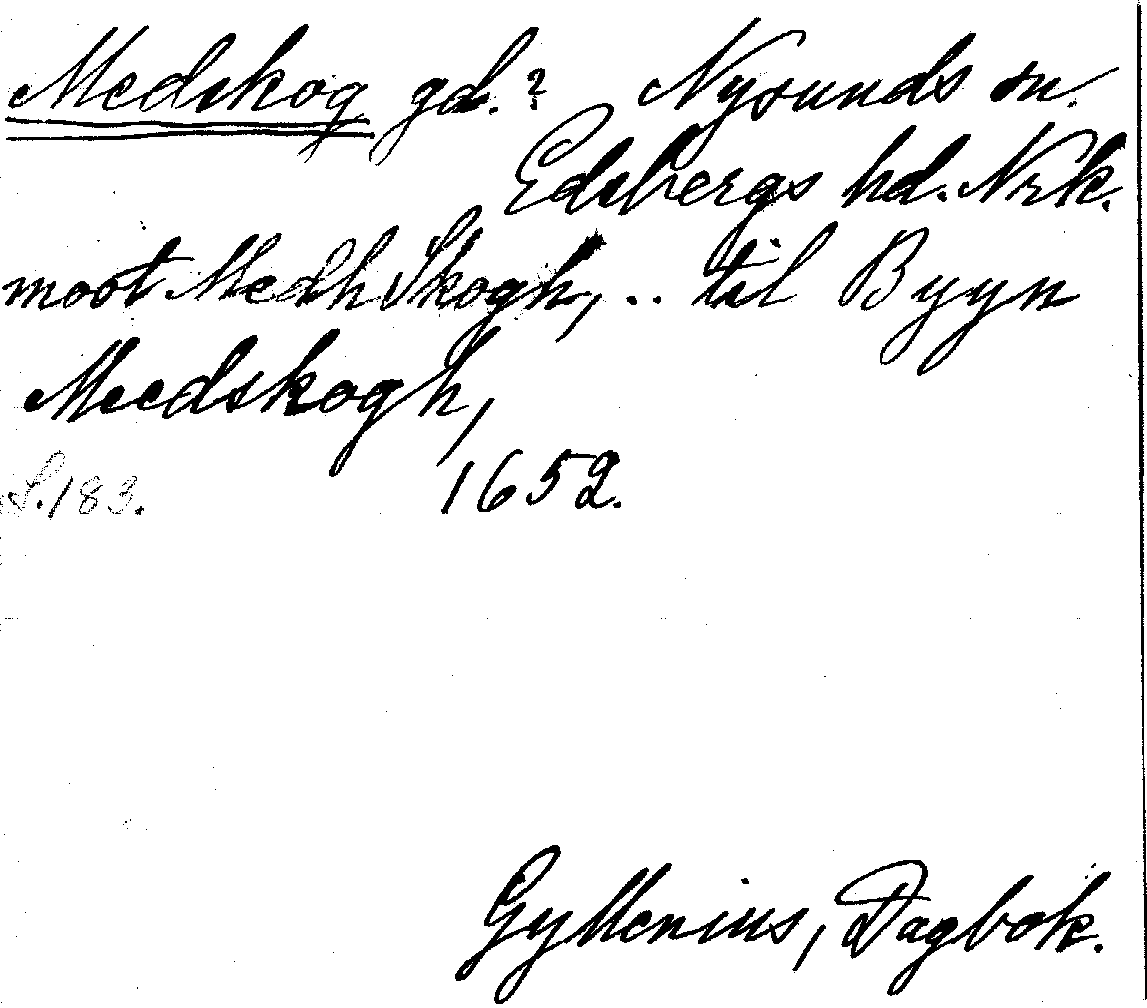 Medskog gd.? Nysunds sn.
Edsbergs hd. Nrk.
moot Medh Skogh, .. til Byyn
Meedskogh,
S. 183. 1652.
Gyllenius, Dagbok.